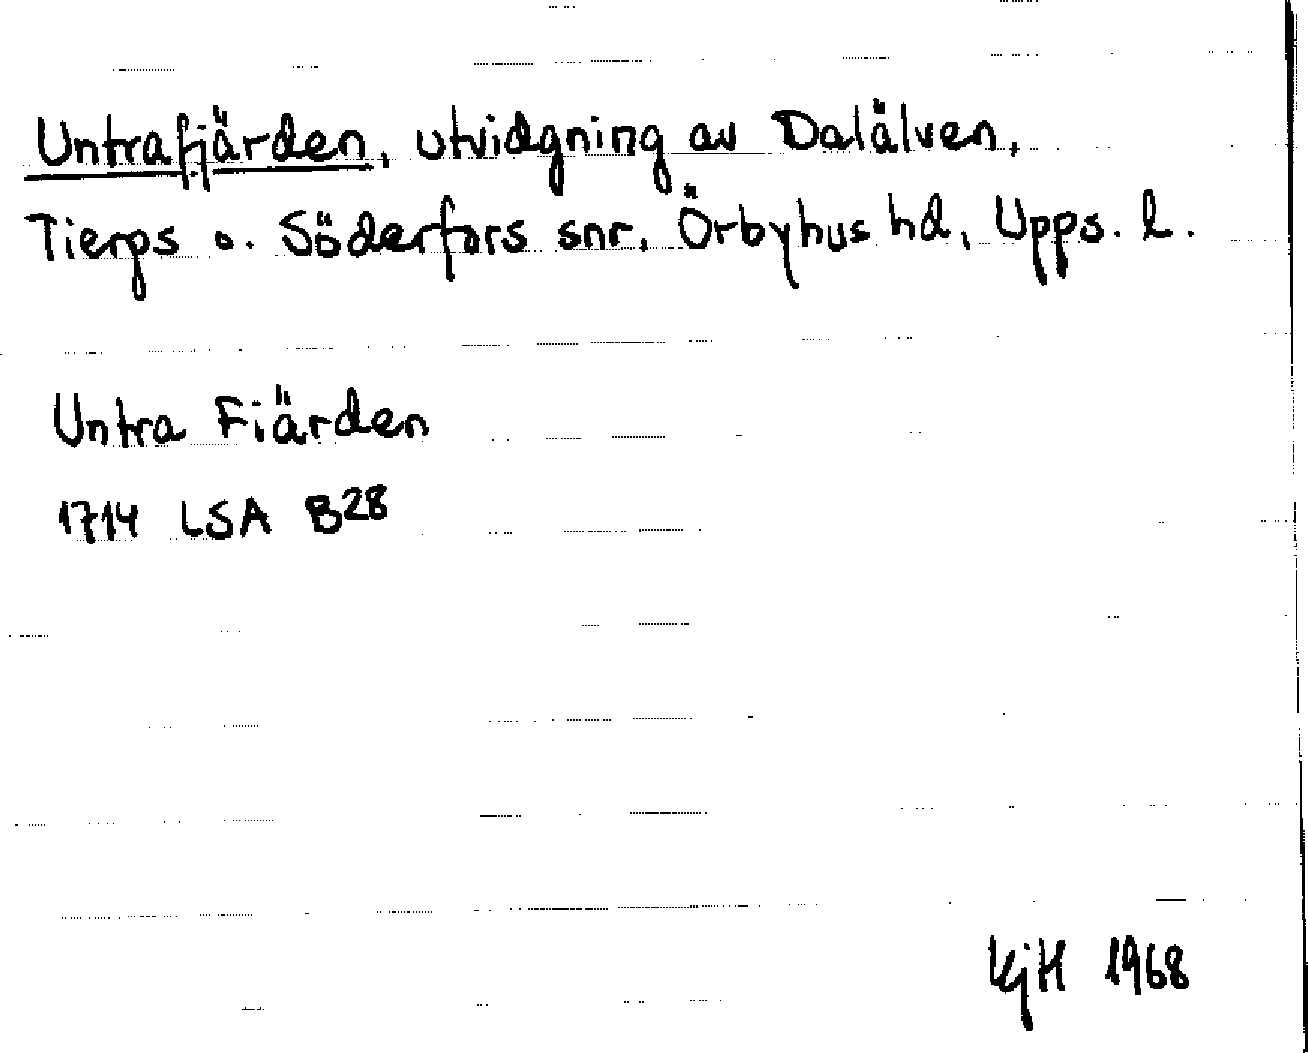 Untrafjärden, utvidgning av Dalälven,
Tierps o. Söderfors snr, Örbyhus hd, Upps. l.
Untra Fiärden
1714 LSA B28
KjH 1968